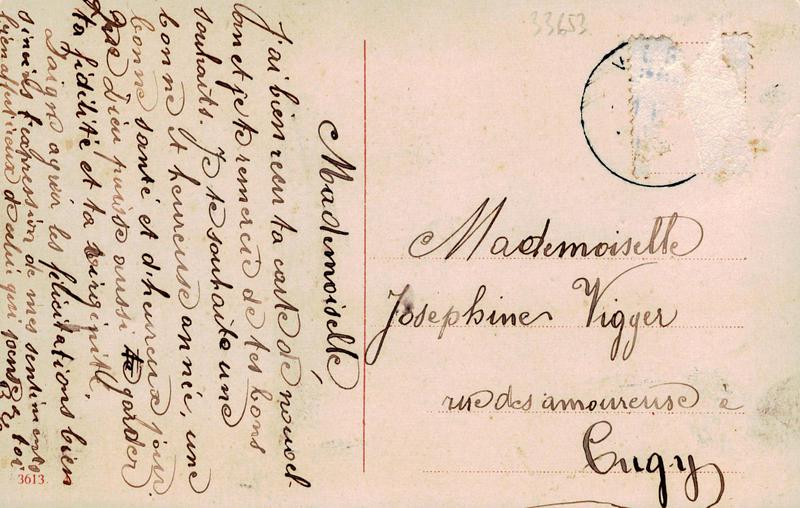 33653
Mademoiselle
J'ai bien resu ta carte de nouvel-
bon et je te remercie de tes bons
souhaits. Je te souhaite une
bonne et heureuse année, une
bonne santé et d'heureux jour.
Que Dieu puisse aussi te garder
ta fidilité et ta virginité.
Daigne agréér les félicitations bien
sincères l'expression de mes sentiments
bien affectueux de celui qui pense a toi
3613
Mademoiselle
Joséphine Vigger
rue des amoureuse à
Cugy